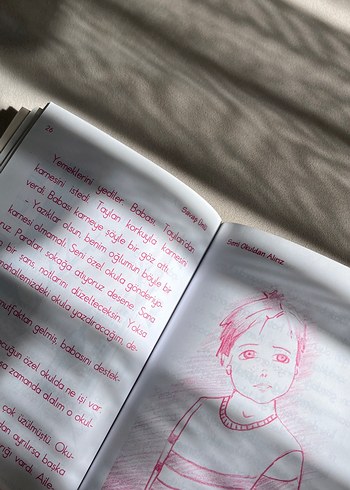 26
Yemeklerini yediler. Babası, Taylan'dan
karnesini istedi. Taylan korkuyla karnesini
verdi. Babası karneye şöyle bir göz attı.
- Yazıklar olsun, benim oğlumun böyle bir
karnesi olmamalı. Seni özel okula gönderiyo-
ruz. Paraları sokağa atıyoruz desene. Sana
bir şans, notlarını düzelteceksin. Yoksa
mahallemizdeki okula yazdıracağım, de-
mutfaktan gelmiş, babasını destek-
çocuğun özel okulda ne işi var.
sa zamanda alalım o okul-
çok üzülmüştü. Oku-
dan ayrılırsa başka
vardı. Aile-
Seni Okuldan Alırız